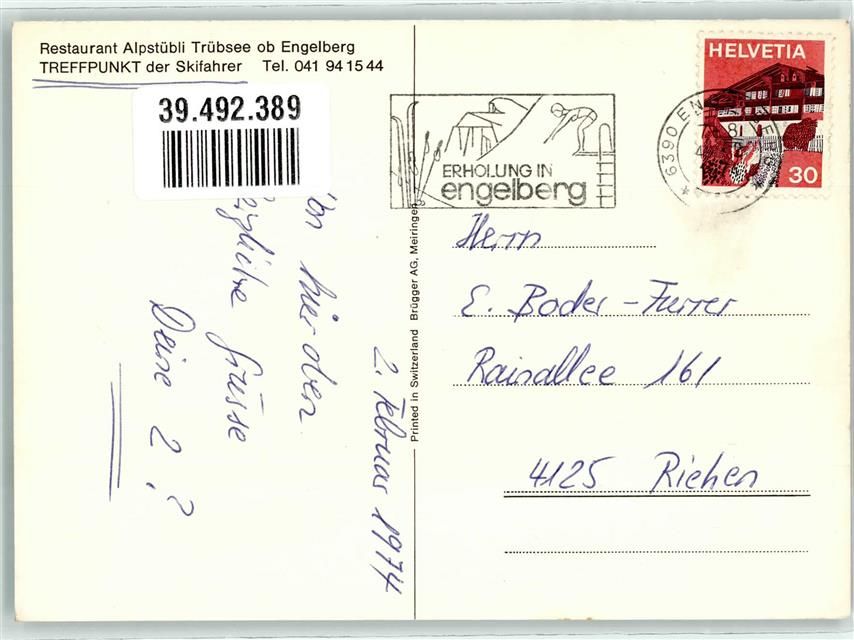 Restaurant Alpstübli Trübsee ob Engelberg
TREFFPUNKT der Skifahrer Tel. 041 94 15 44
39.492.389
2. Februar 1974
hier oben
Grüsse
Deine 2 ?
Printed in Switzerland Brügger AG, Meiringen
ERHOLUNG IN
engelberg
6390
HELVETIA
30
Herrn
E. Boder-Furrer
Rainallee 161
4125 Riehen